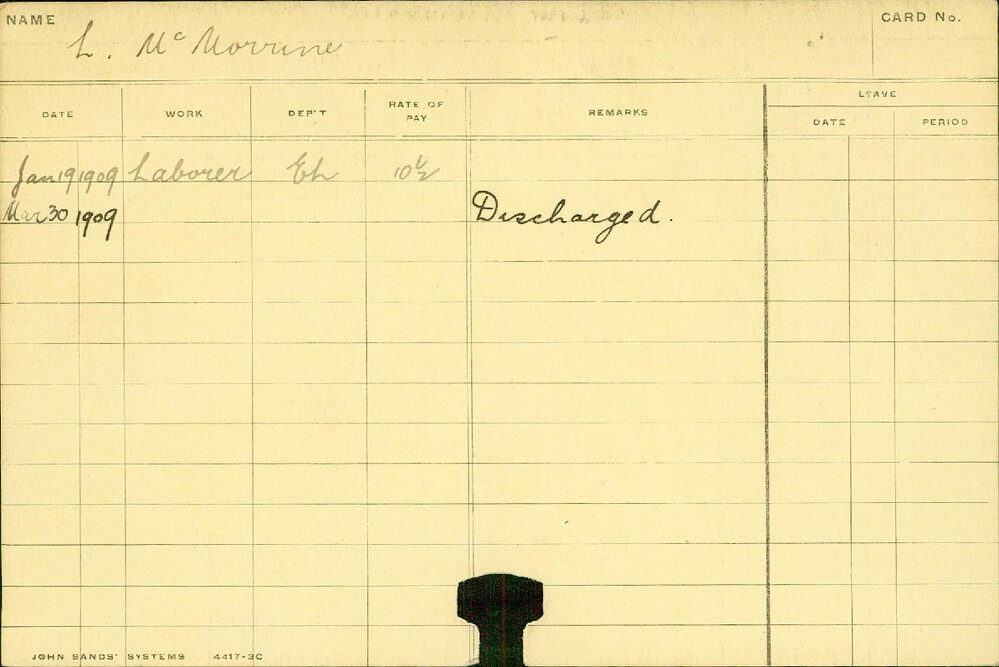 NAME
L. McMorrine
CARD No.
DATE WORK DEP'T RATE OF PAY REMARKS LEAVE
DATE PERIOD
Jan 19 1909 Laborer Eh 10½
Mar 30 1909 Discharged.
JOHN SANDS' SYSTEMS 4417-3C